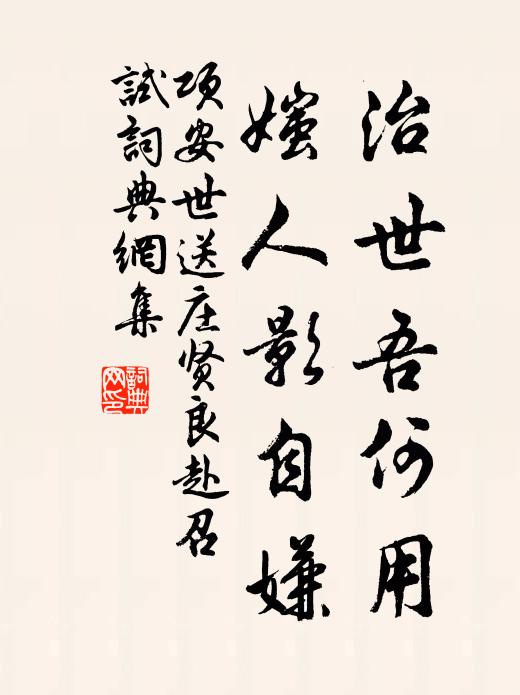 治世吾何用
媸人影自嫌
项安世送庄贤良赴召
試詞典網集
詞典
网印